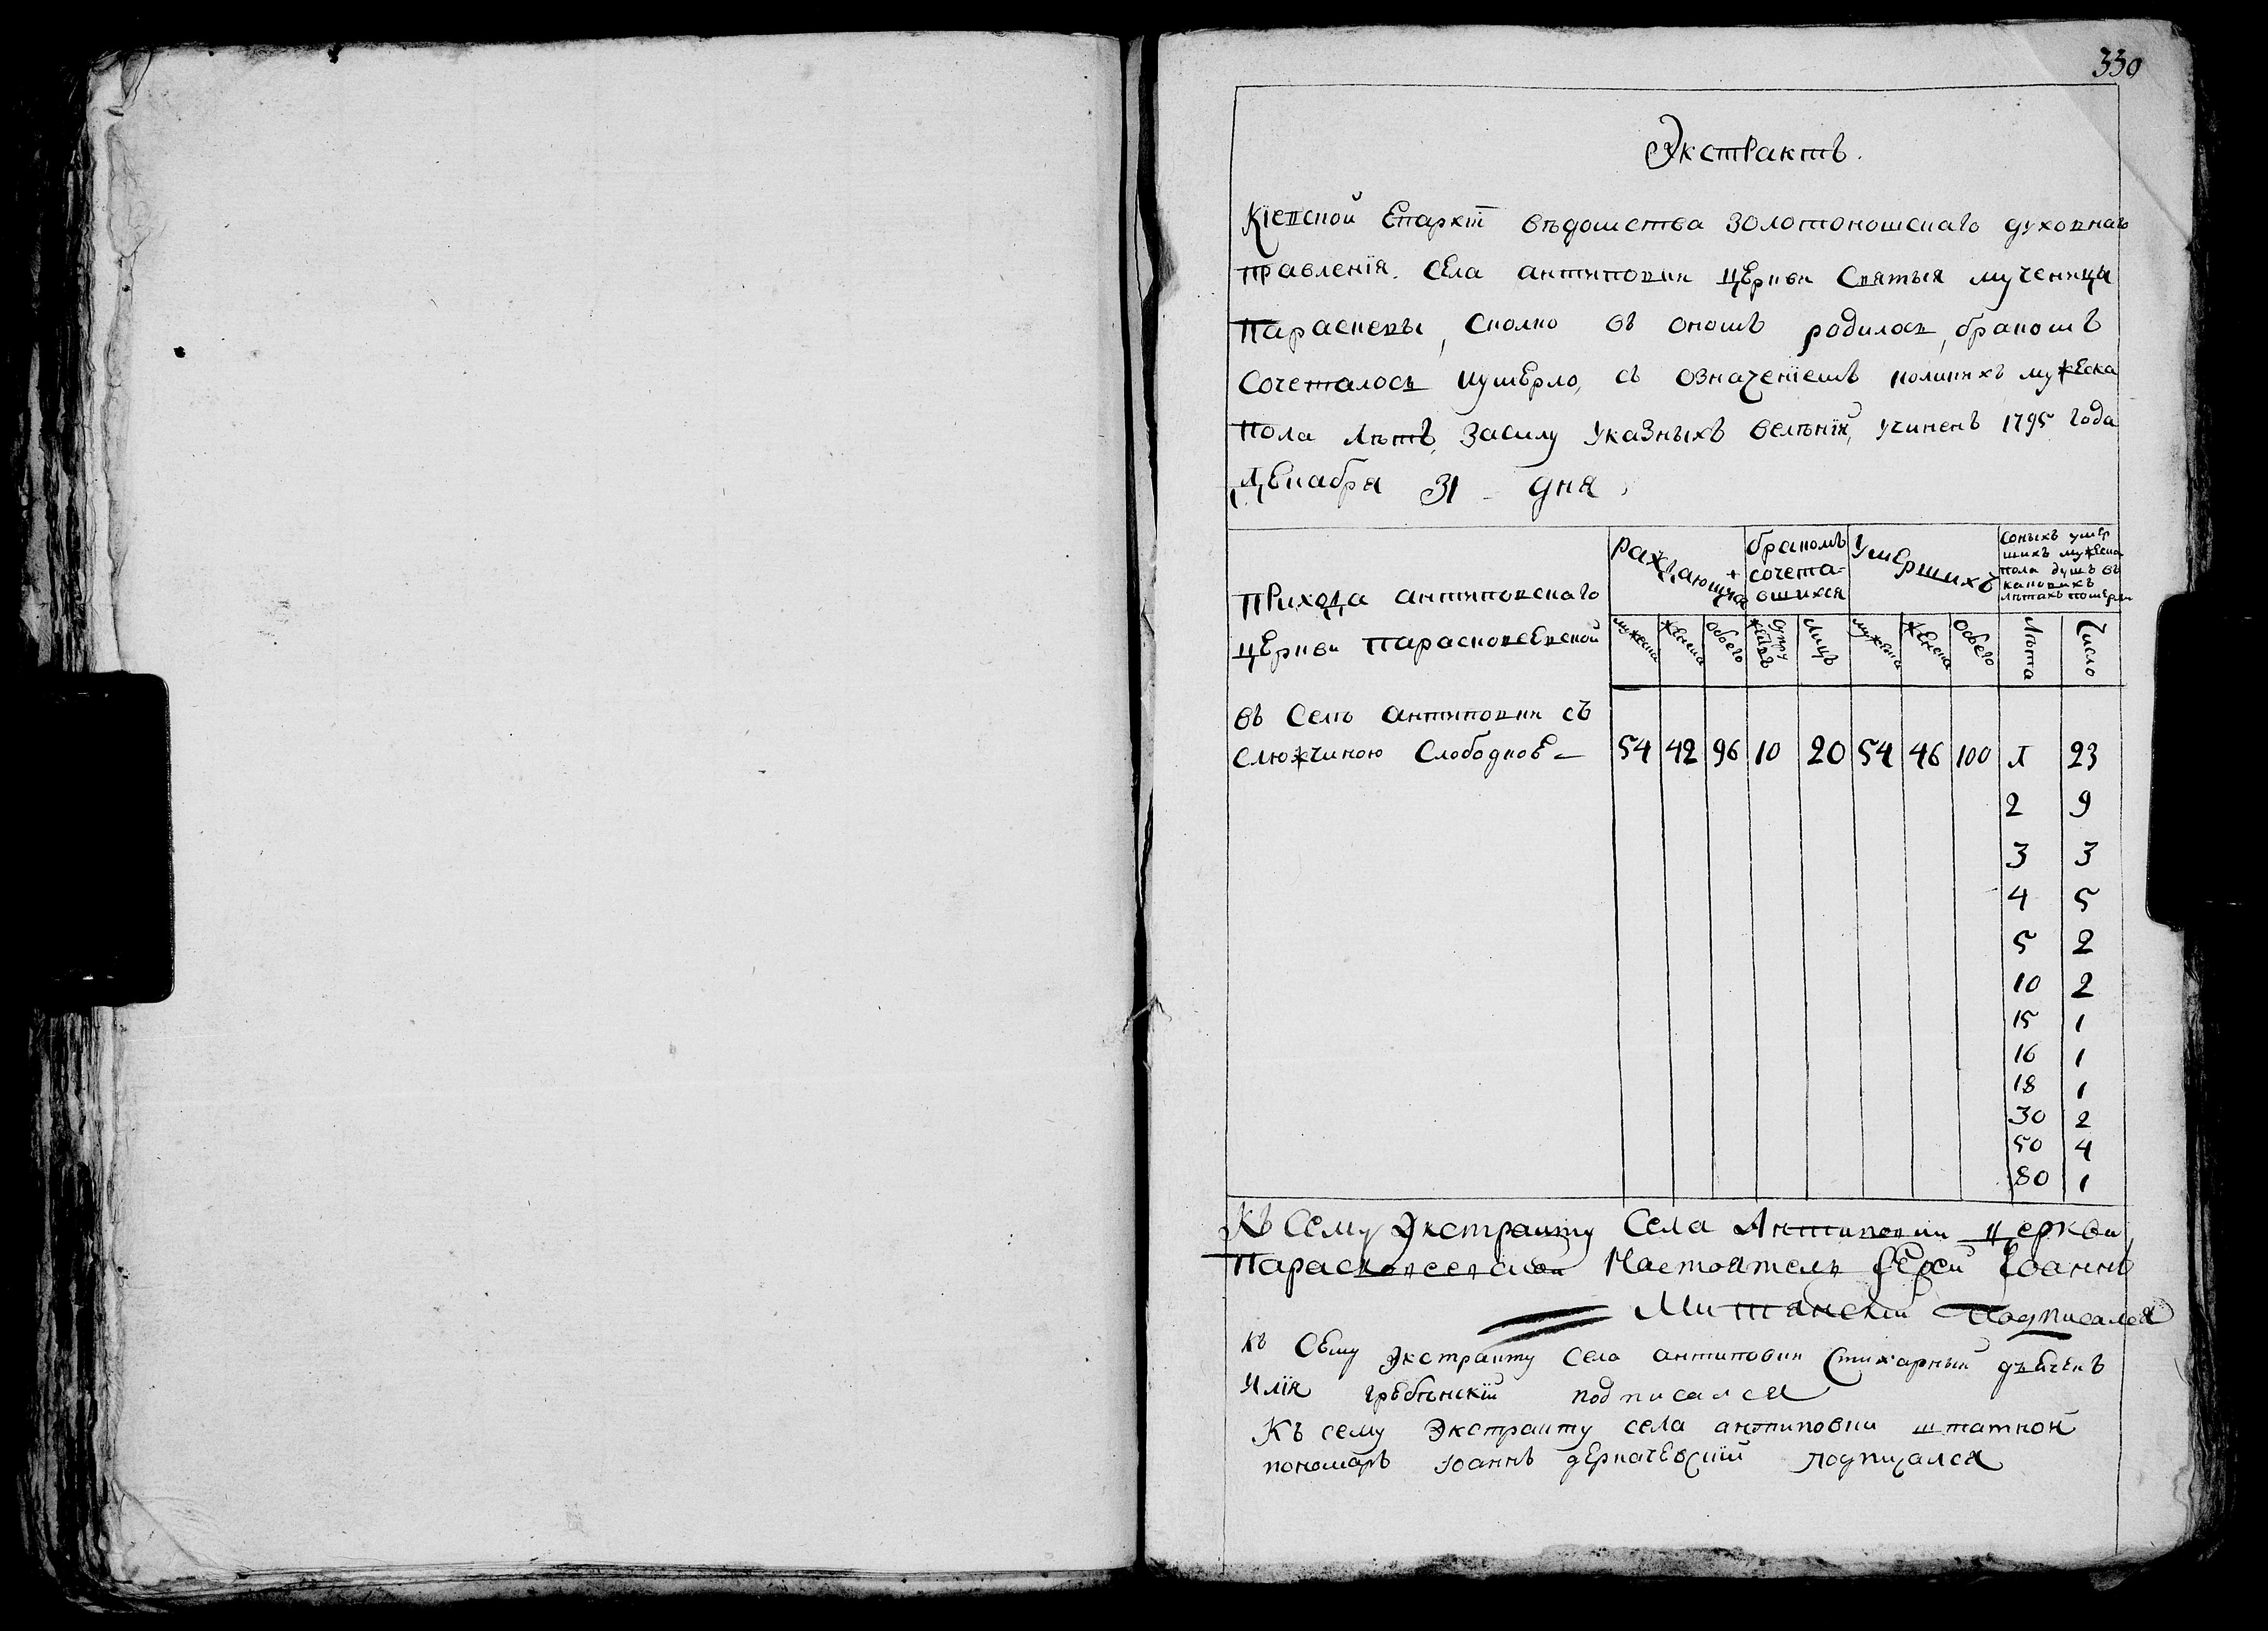 330
Экстрактъ.
Кіевской Епархіи вѣдомства Золотоношскаго духовнаго
правленія. Села антиповки церкви Святыя мученицы
Параскевы, сколко въ ономъ родилось, бракомъ
сочеталось иумерло, съ означеніемъ коликихъ мужеска
пола лѣтъ, засилу указныхъ велѣній, учиненъ 1795 года
Декабря 31 дня
Прихода антиповскаго
церкви Парасковеевской
раждающихся
бракомъ
сочета-
вшихся
Умершихъ
соныхъ умер
шихъ мужеска
пола душъ въ
каковихъ
лѣтахъ померли
мужеска женска обоего супружествъ лицъ мужеска женска обоего Лѣта Число
въ Селѣ антиповки съ
слюжчиною Слободкое – 54 42 96 10 20 54 46 100 1 23
2 9
3 3
4 5
5 2
10 2
15 1
16 1
18 1
30 2
50 4
80 1
Къ Сему Экстракту Села Антиповки церкви
Парасковеевской Настоятель Іерей Іоаннъ
Митянскій Подписался
къ Сему Экстракту села антиповки Стихарный дьячекъ
Илія гребѣнскій подписался
Къ сему Экстракту села антиповки штатной
пономарь Іоаннъ деркачевскій подписался